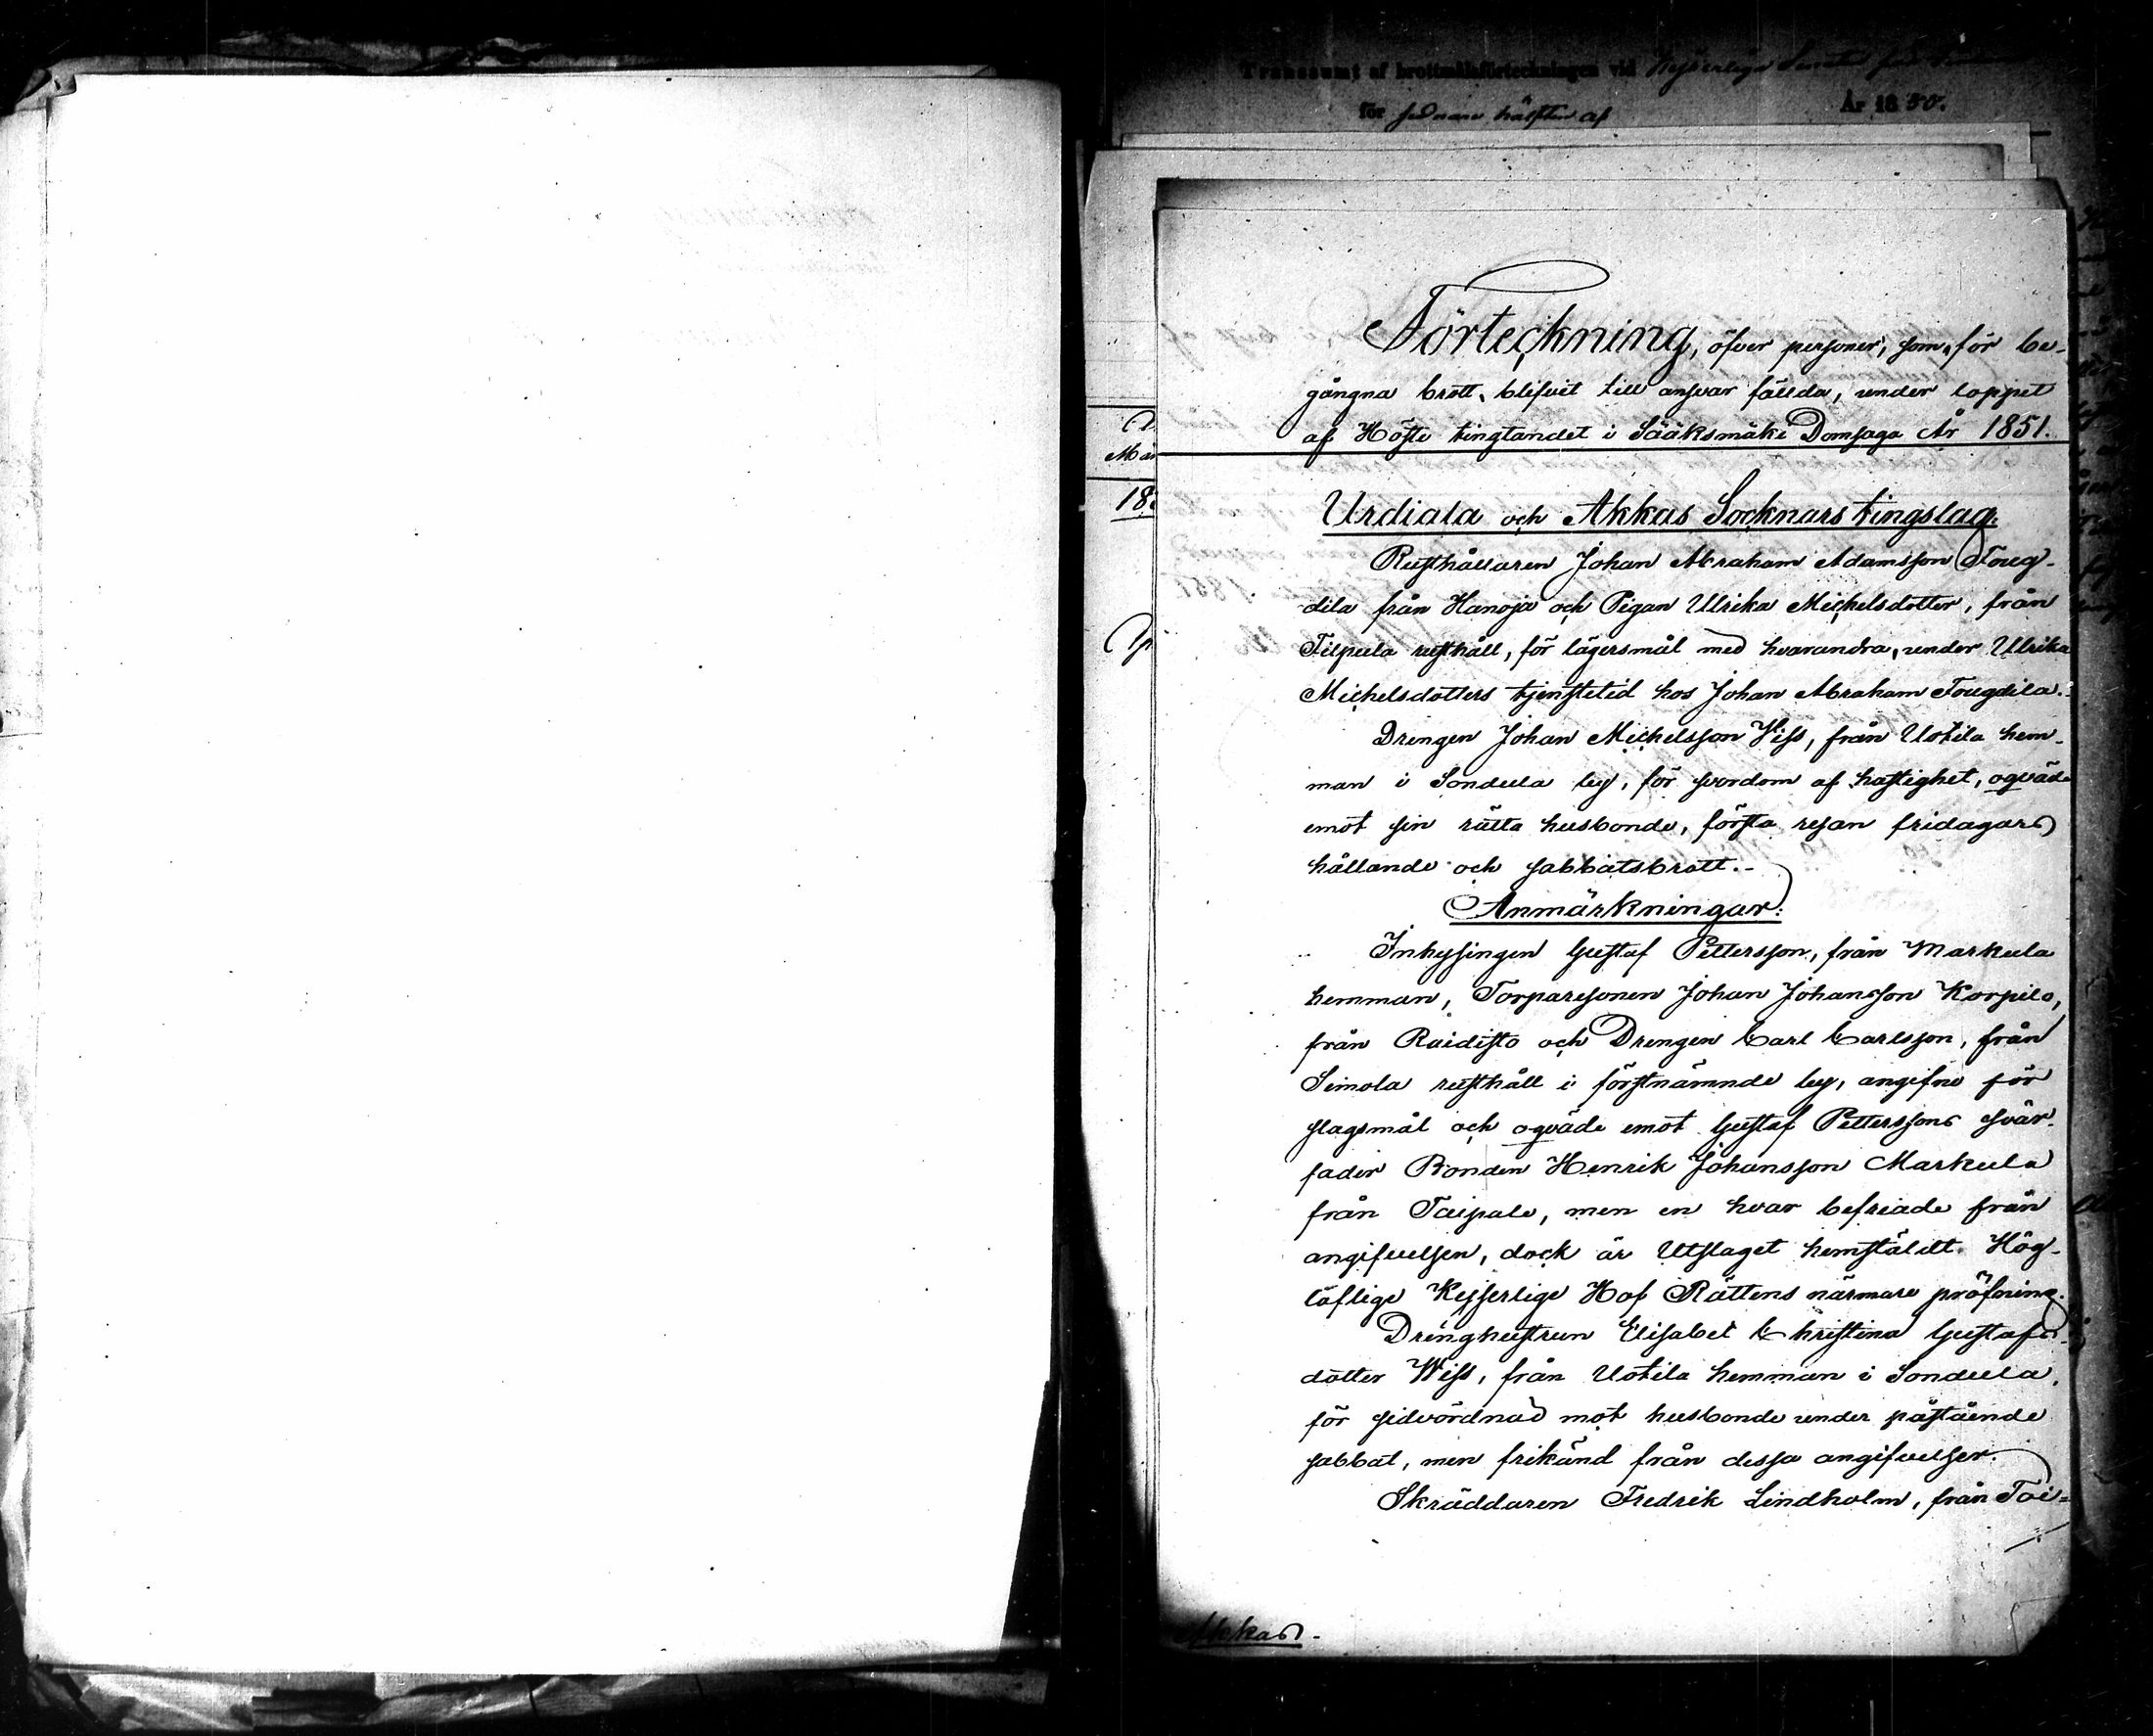 Transsumt af brottmålsförteckningen vid Kejserliga Senaten för
för sednare hälften af År 1850.
Förteckning, öfver personer, som, för be-
gångna brott, blifvit till ansvar fällda, under loppet
af Höste tingtandet i Sääksmäki Domsaga År 1851.
Mär
18
Urdiala och Akkas Socknars tingslag.
Rusthållaren Johan Abraham Adamsson Toug-
dila från Hanoja och Pigan Ulrika Michelsdotter, från
Tilpula rusthåll, för lägersmål med hvarandra, under Ulrika
Michelsdotters tjenstetid hos Johan Abraham Tougdila.
Drengen Johan Michelsson Viss, från Uotila hem-
man i Sondula by, för svordom af hastighet, oqväde
emot sin rätta husbonde, första resan fridagars
hållande och sabbatsbrott.-
Anmärkningar:
Inhysingen Gustaf Pettersson, från Markula
hemman, Torparesonen Johan Johansson Korpilo,
från Raidisto och Drengen Carl Carlsson, från
Simola rusthåll i förstnämnde by, angifne för
slagsmål och oqväde emot Gustaf Petterssons svär-
fader Bonden Henrik Johansson Markula
från Taipale, men en hvar befriade från
angifvelsen, dock är Utslaget hemstäldt Hög-
löflige Kejserlige Hof Rättens närmare pröfning.
Dränghustrun Elisabet Christina Gustafs-
dotter Wiss, från Uotila hemman i Sondula,
för sidvördnad mot husbonde under påstående
sabbat, men frikänd från dessa angifvelser.
Skräddaren Fredrik Lindholm, från Toi=
Akkas.-